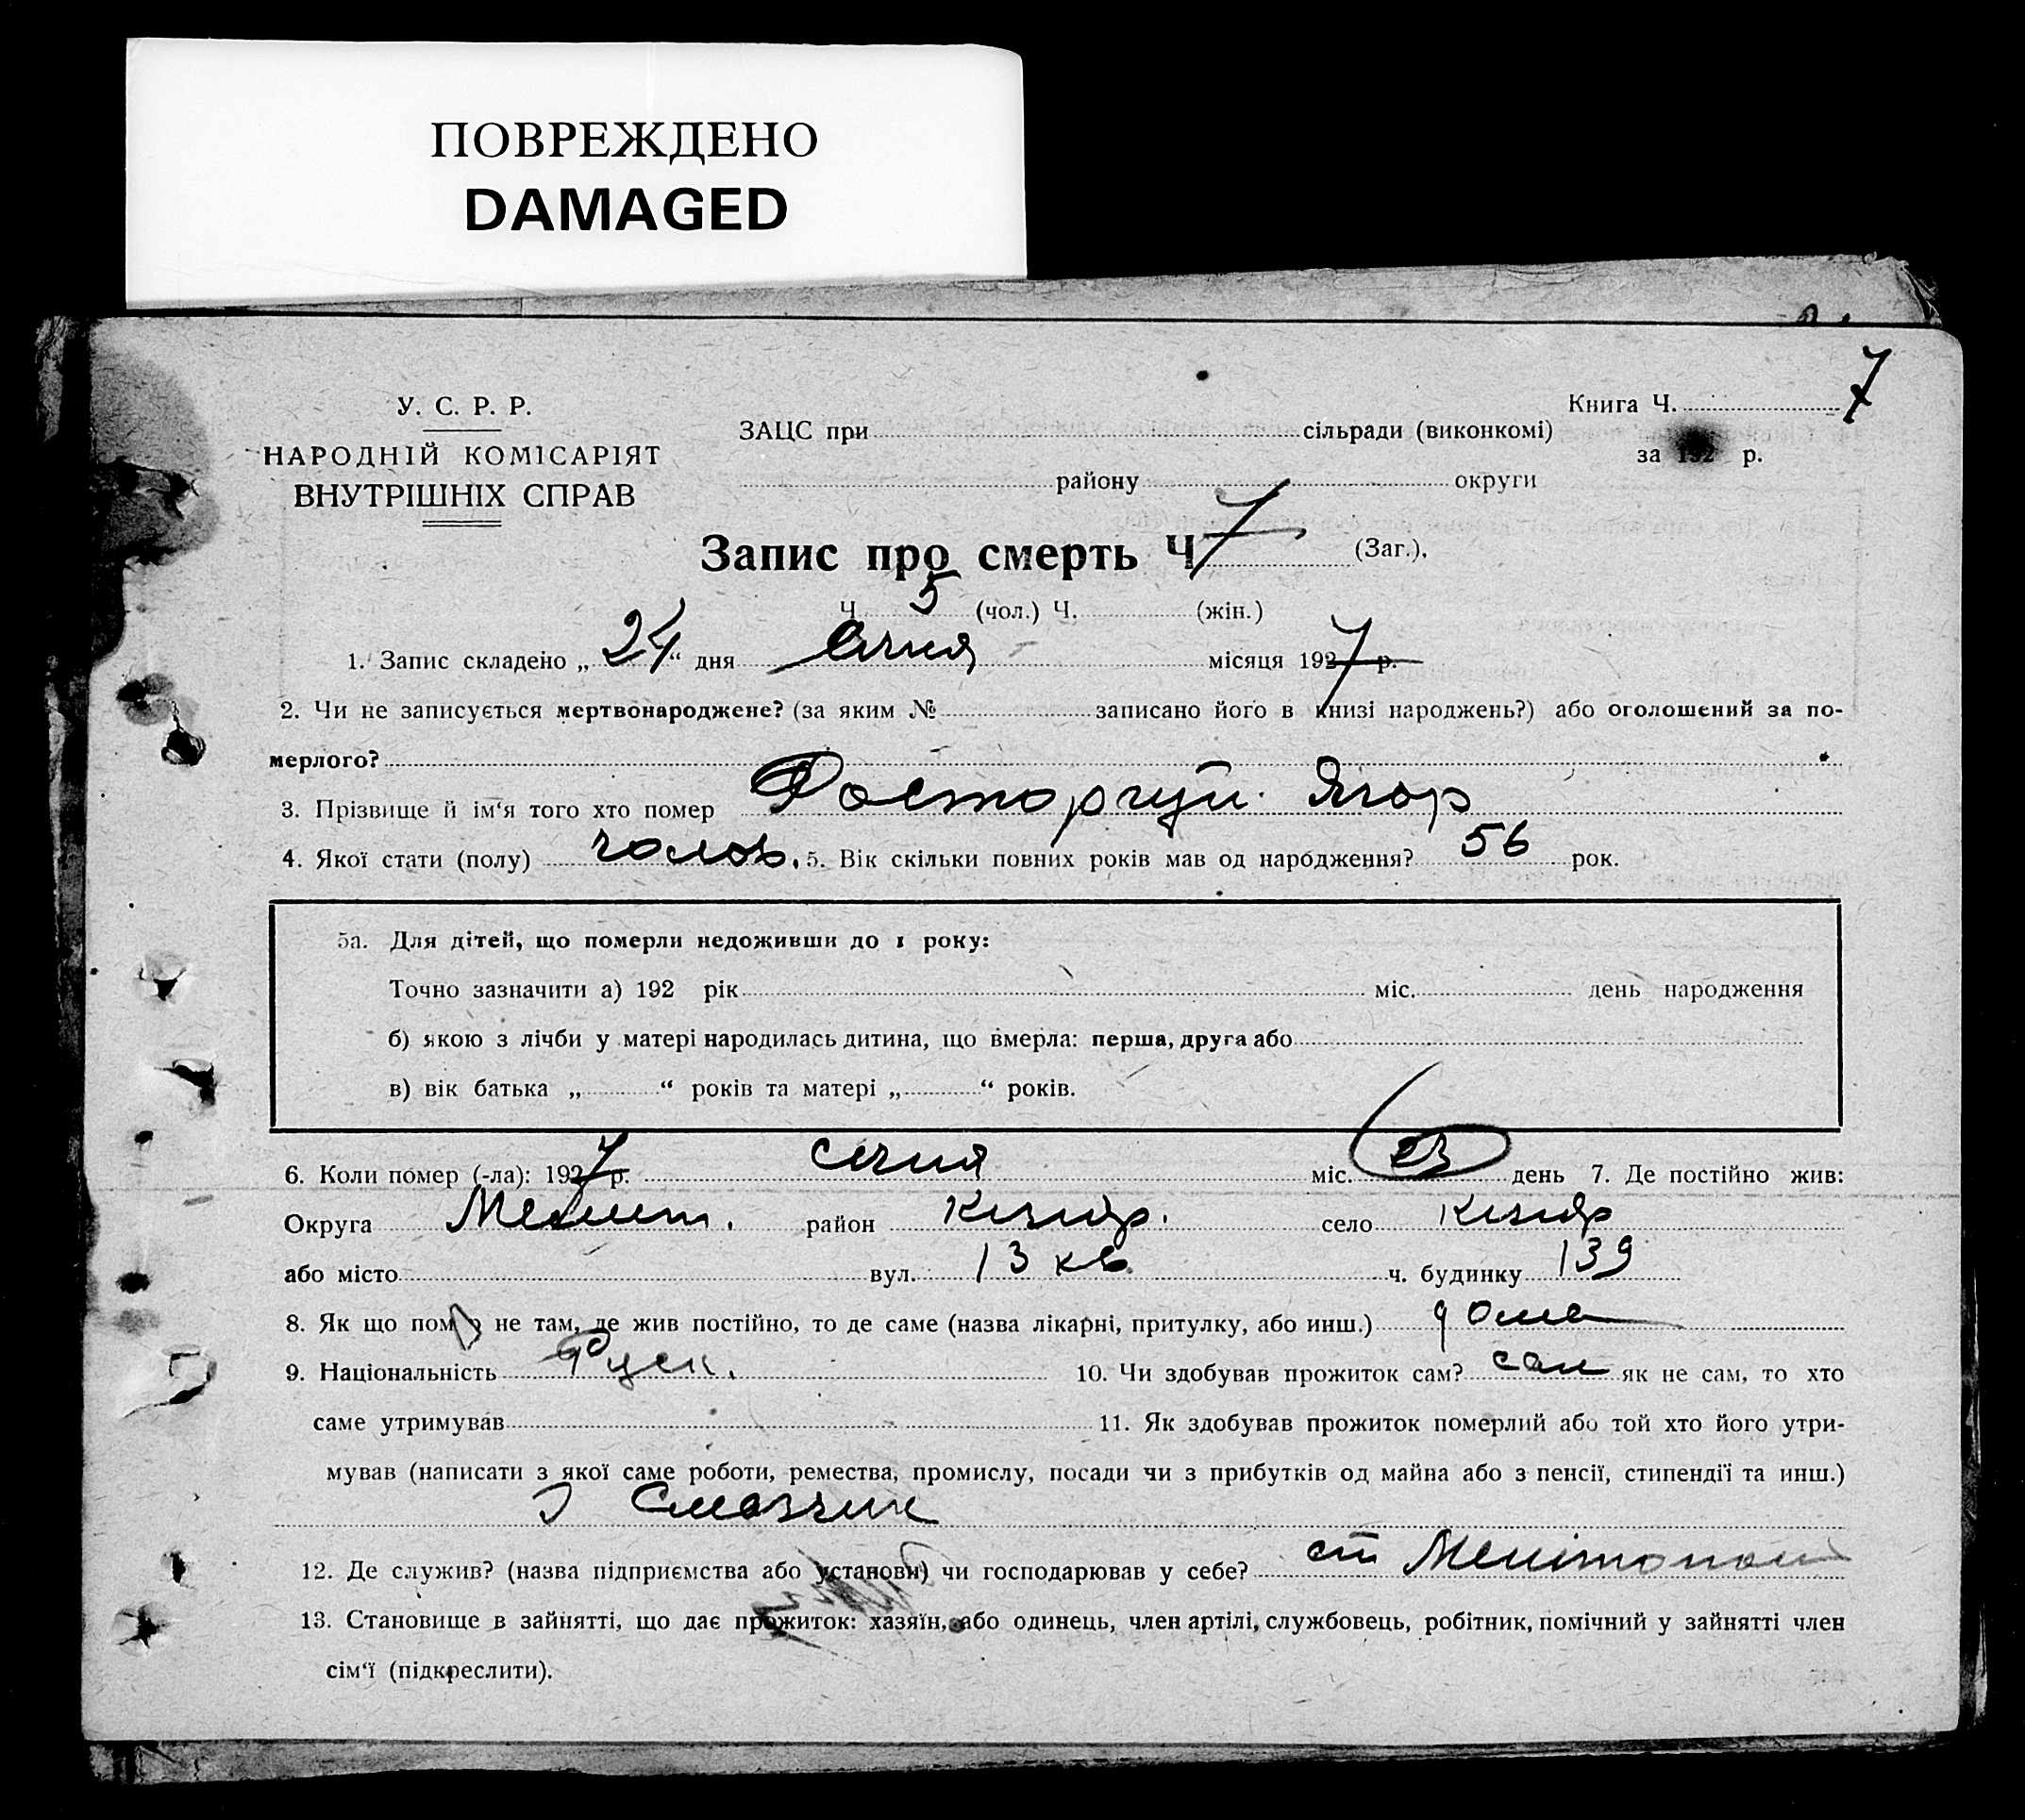 ПОВРЕЖДЕНО
DAMAGED
7
У. С. Р. Р.
НАРОДНІЙ КОМІСАРІЯТ
ВНУТРІШНІХ СПРАВ
ЗАЦС при сільради (виконкомі)
району округи
Книга Ч.
за 192 р.
Запис про смерть Ч 7 (Заг.),
Ч 5 (чол.) Ч. (жін.)
1. Запис складено „ 24 “ дня січня місяця 1927 р.
2. Чи не записується мертвонароджене? (за яким № записано його в книзі народжень?) або оголошений за по-
мерлого?
3. Прізвище й ім‘я того хто помер Фасторгуй Ягор
4. Якої стати (полу) чолов. 5. Вік скільки повних років мав од народження? 56 рок.
5а. Для дітей, що померли недоживши до 1 року:
Точно зазначити а) 192 рік міс. день народження
б) якою з лічби у матері народилась дитина, що вмерла: перша, друга або
в) вік батька „ “ років та матері „ “ років.
6. Коли помер (-ла): 1927 р. січня міс. 23 день 7. Де постійно жив:
Округа Мелит. район Кизияр. село Кизияр
або місто вул. 13 кв. ч. будинку 139
8. Як що помер не там, де жив постійно, то де саме (назва лікарні, притулку, або инш.) дома
9. Національність Руск. 10. Чи здобував прожиток сам? сам як не сам, то хто
саме утримував 11. Як здобував прожиток померлий або той хто його утри-
мував (написати з якої саме роботи, ремества, промислу, посади чи з прибутків од майна або з пенсії, стипендії та инш.)
Смазчик
12. Де служив? (назва підприємства або установи) чи господарював у себе? ст Мелітополь
13. Становище в зайнятті, що дає прожиток: хазяїн, або одинець, член артілі, службовець, робітник, помічний у зайнятті член
сім‘ї (підкреслити).